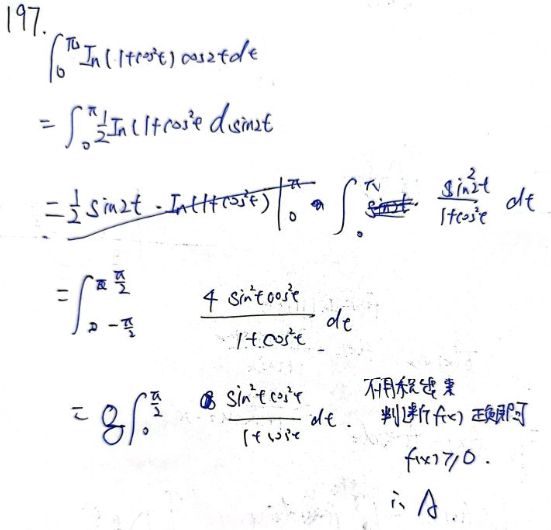 197.
∫₀^π ln(1+cos²t) cos2t dt
= ∫₀^π ½ ln(1+cos²t d sin2t
= ½ sin2t · ln(1+cos²t) |₀^π ∫₀^π sin²2t / 1+cos²t dt
= ∫_{-π/2}^{π/2} 4 sin²t cos²t / 1+cos²t dt
= 8 ∫₀^{π/2} sin²t cos²t / 1+cos²t dt. 不用积结果
判断f(x)正负即可
f(x)≥0.
∴ A.